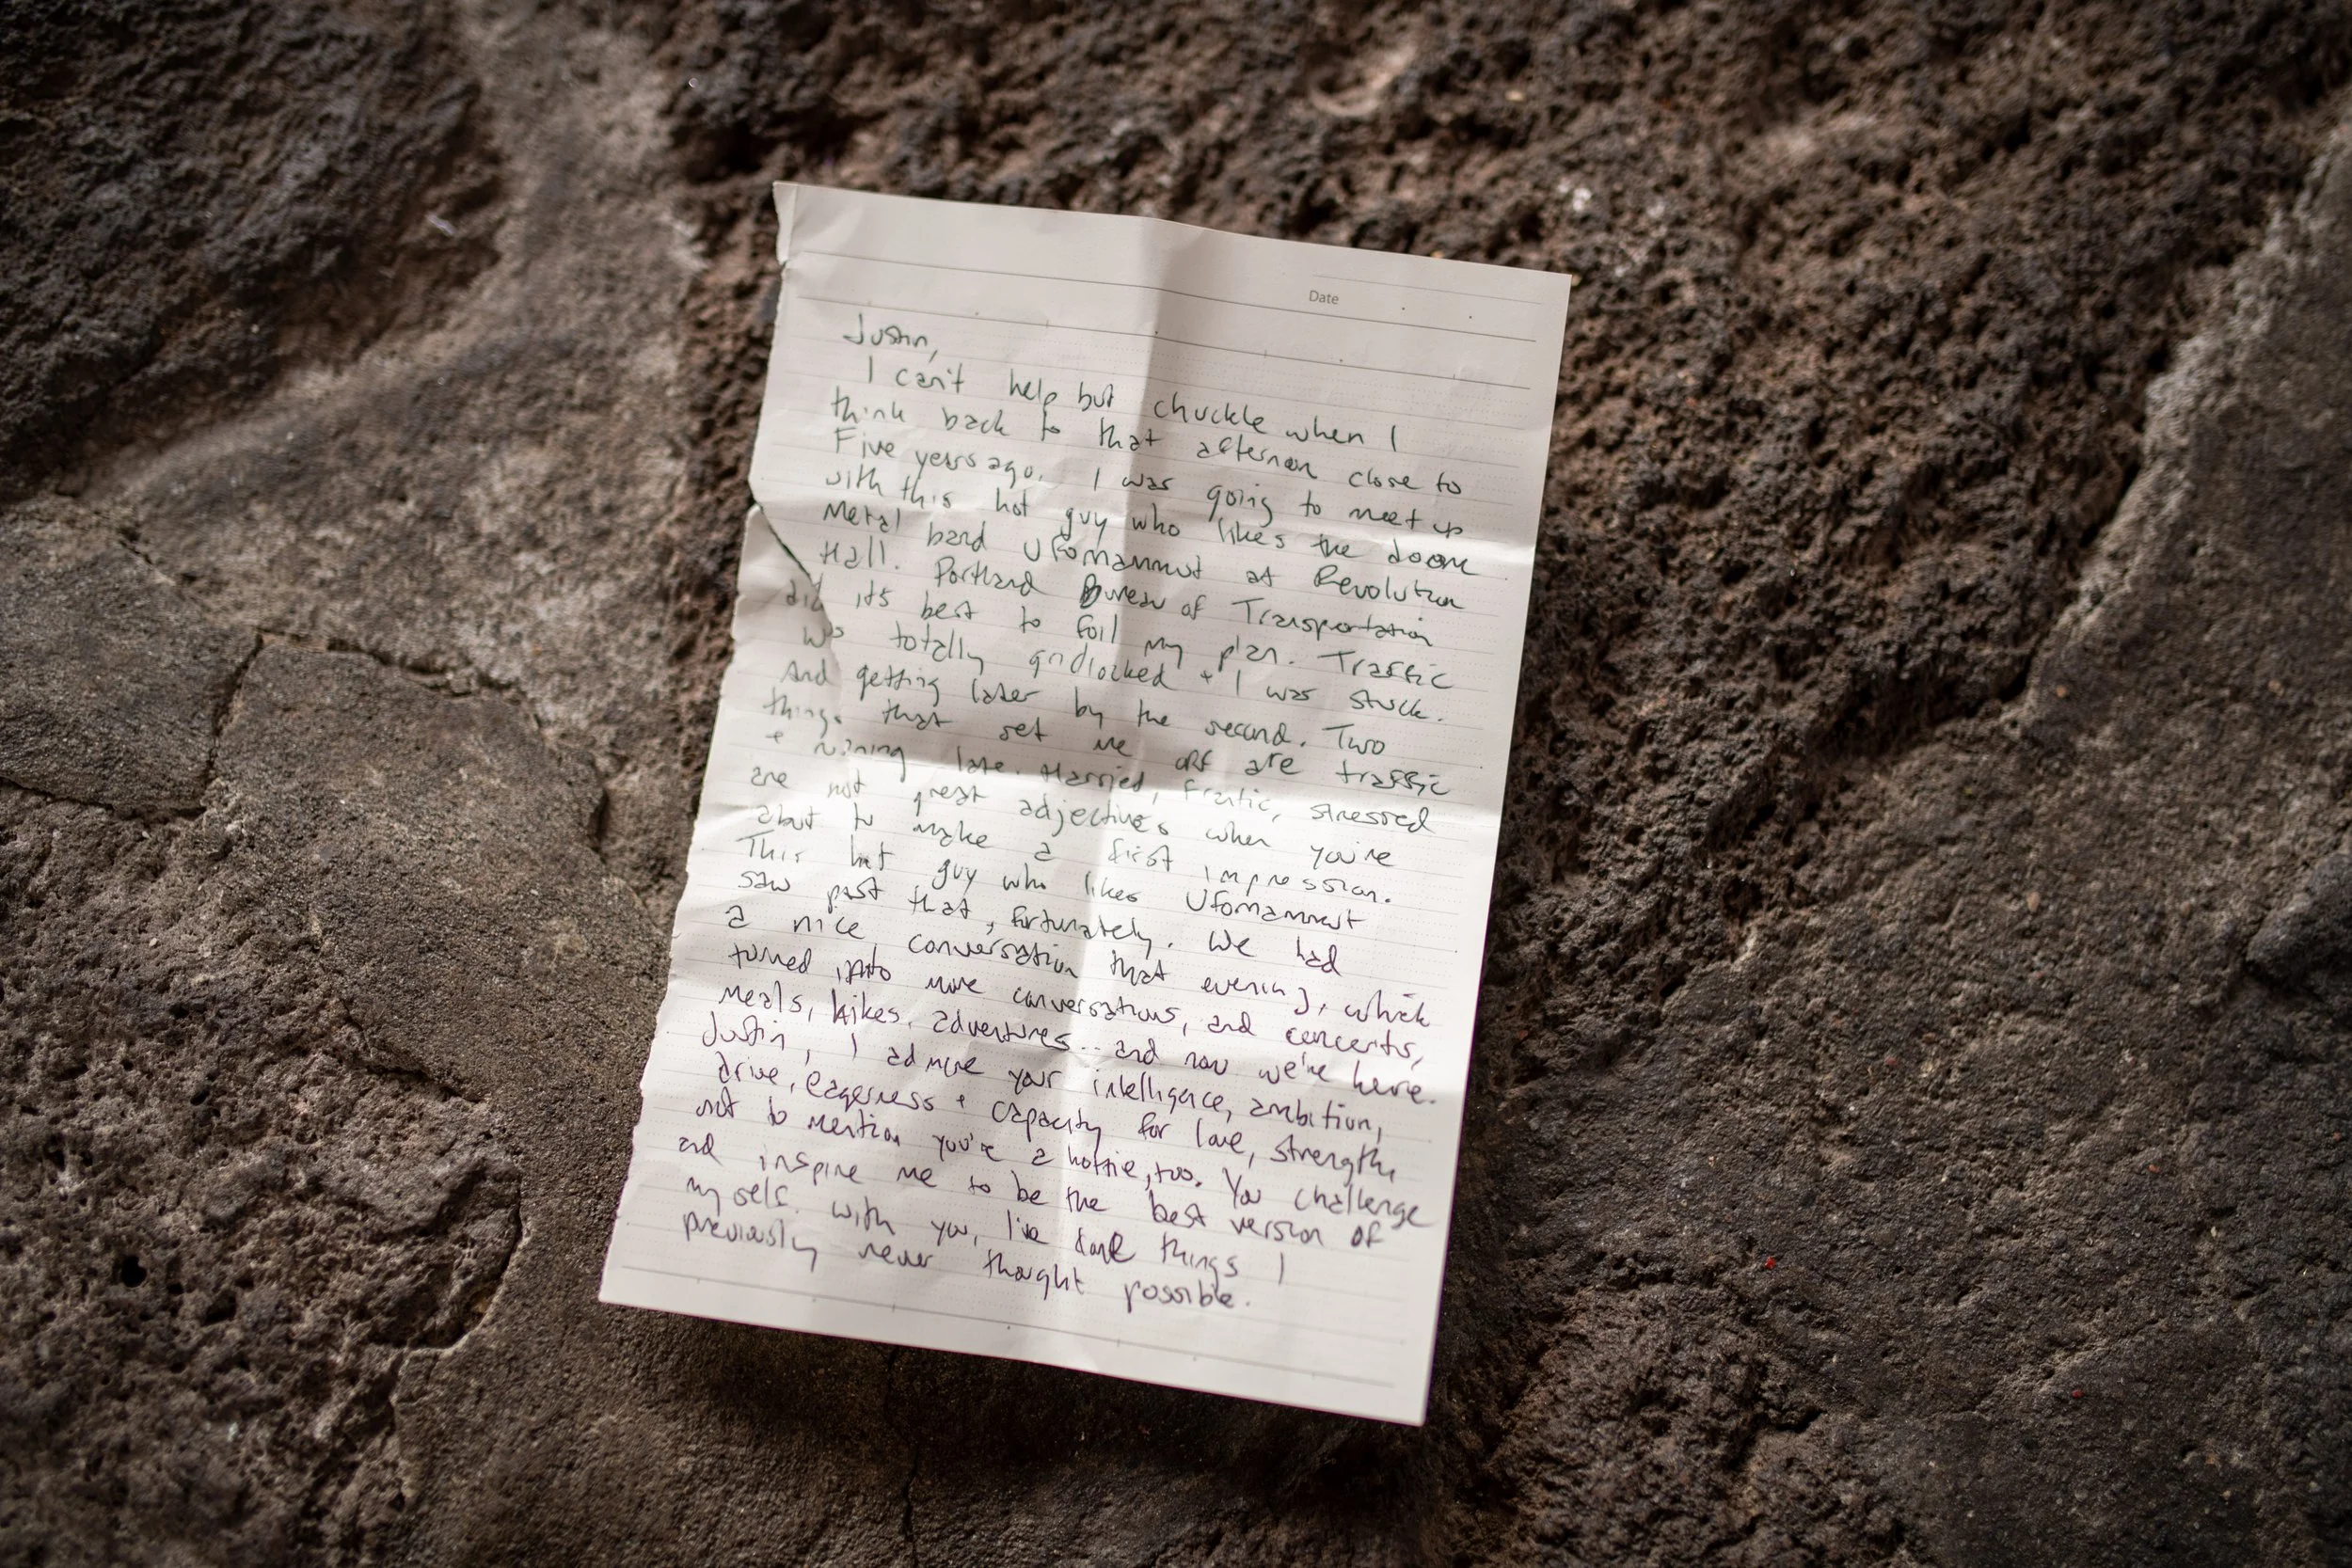 Date
Justin,
I can't help but chuckle when I
think back to that afternoon close to
Five years ago. I was going to meet up
with this hot guy who likes the doom
metal band Ufomammut at Revolution
Hall. Portland Bureau of Transportation
did it's best to foil my plan. Traffic
was totally gridlocked + I was stuck.
And getting later by the second. Two
things that set me off are traffic
+ running late. Harried, frantic, stressed
are not great adjectives when you're
about to make a first impression.
This hot guy who likes Ufomammut
saw past that, fortunately. We had
a nice conversation that evening, which
turned into more conversations, and concerts,
meals, hikes, adventures... and now we're here.
Justin, I admire your intelligence, ambition,
drive, eagerness + capacity for love, strength,
not to mention you're a hottie, too. You challenge
and inspire me to be the best version of
myself. With you, I've done things I
previously never thought possible.